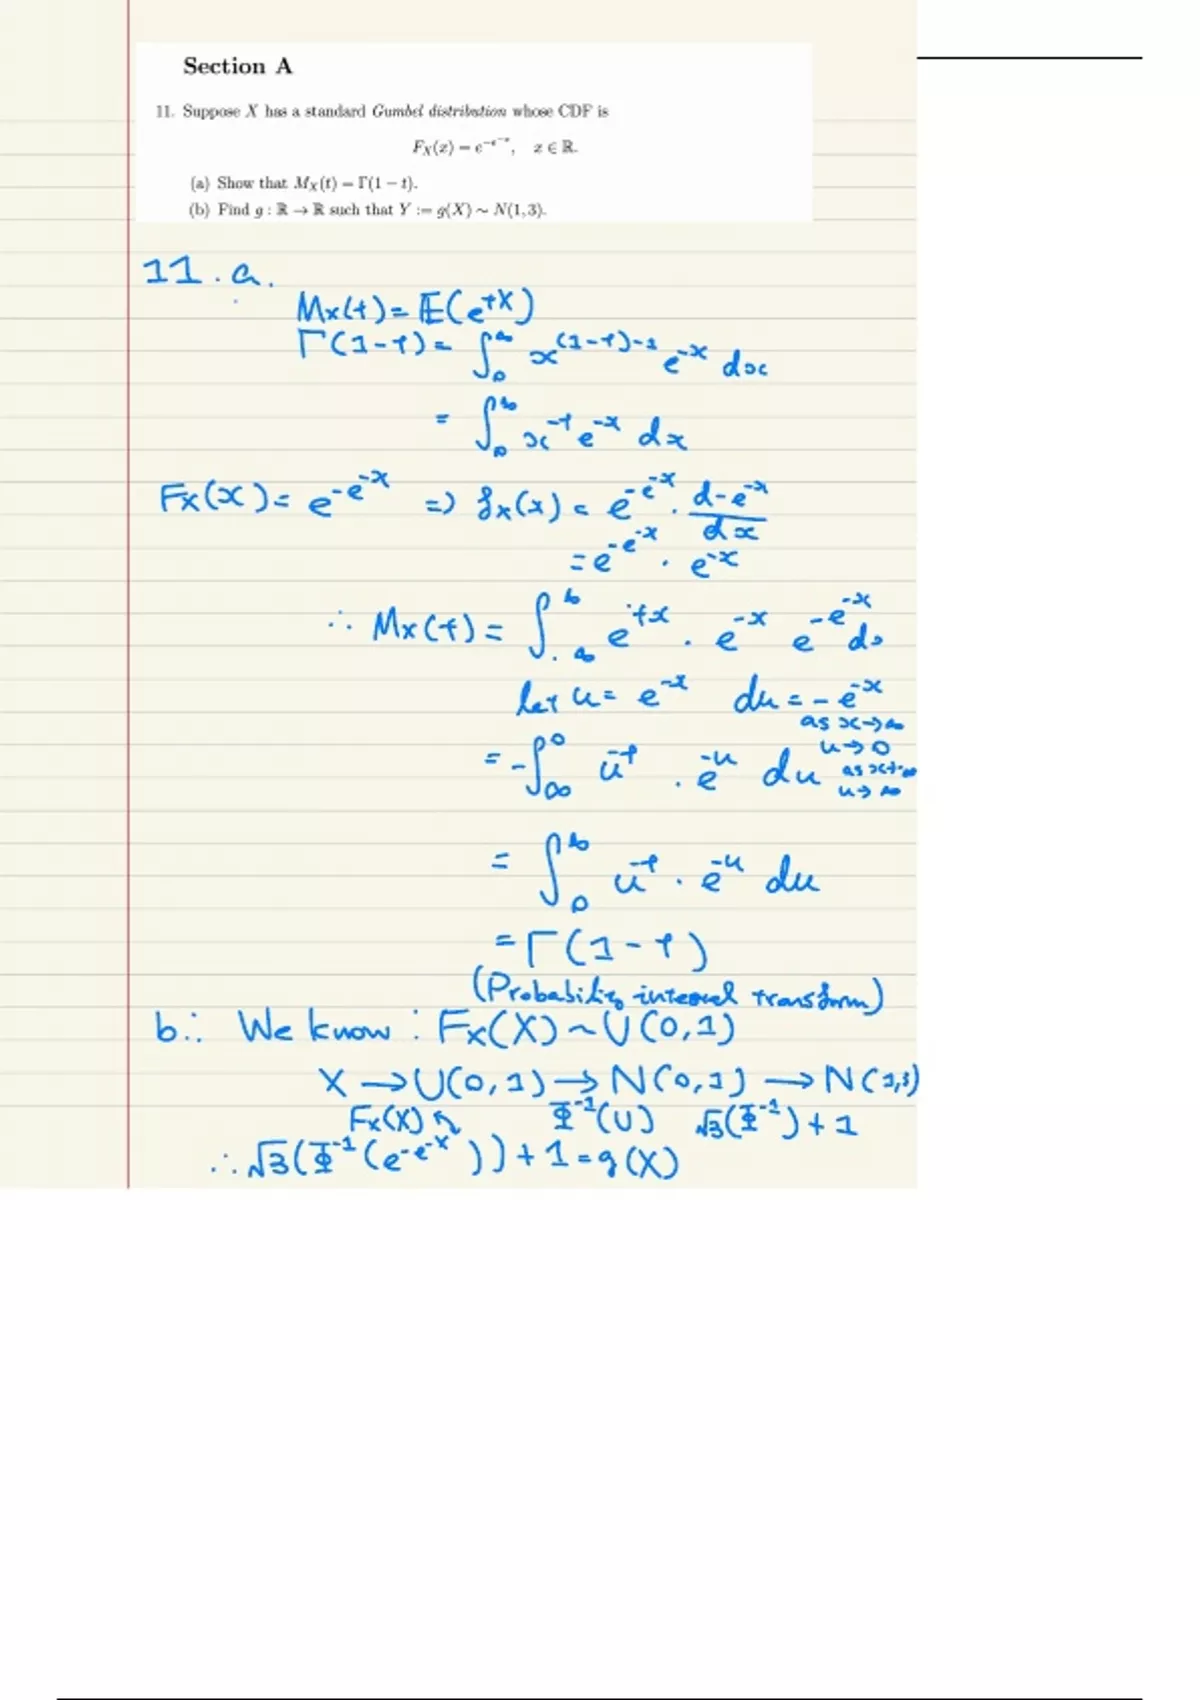 Section A
11. Suppose X has a standard Gumbel distribution whose CDF is
F_X(x) = e^{-e^{-x}}, x ∈ ℝ.
(a) Show that M_X(t) = Γ(1 − t).
(b) Find g : ℝ → ℝ such that Y := g(X) ~ N(1, 3).
11. a.
Mx(t) = 𝔼(e^{tX})
Γ(1-t) = ∫_0^∞ x^{(1-t)-1} e^{-x} dx
= ∫_0^∞ x^{-t} e^{-x} dx
Fx(x) = e^{-e^{-x}} => fx(x) = e^{-e^{-x}} . d-e^{-x}/dx
= e^{-e^{-x}} . e^{-x}
∴ Mx(t) = ∫_{-∞}^∞ e^{tx} . e^{-x} e^{-e^{-x}} dx
let u = e^{-x} du = -e^{-x}
as x→∞
u→0
= -∫_∞^0 u^{-t} . e^{-u} du as x→-∞
u→∞
= ∫_0^∞ u^{-t} . e^{-u} du
= Γ(1-t)
(Probability integral transform)
b.: We know : Fx(X) ~ U(0,1)
X → U(0,1) → N(0,1) → N(1,3)
Fx(X) ↖ Φ^{-1}(U) √3(Φ^{-1}) + 1
∴ √3(Φ^{-1}(e^{-e^{-x}})) + 1 = g(X)